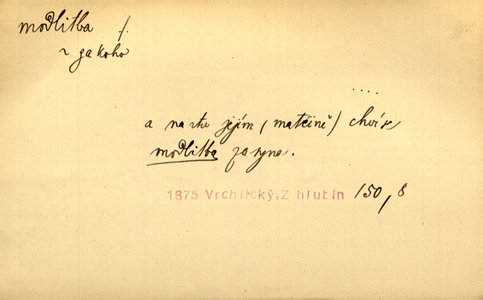 modlitba f.
~ za koho
....
a na rtu jejím (matčině) chví se
modlitba za syna.
1875 Vrchlický, Z hlubin 150, 8